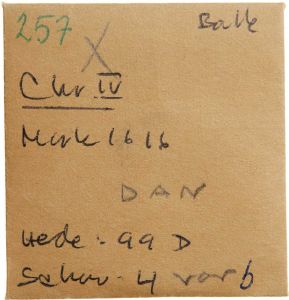 257 Balle
X
Chr IV
Mark 1616
DAN
Hede - 99 D
Schou - 4 var b